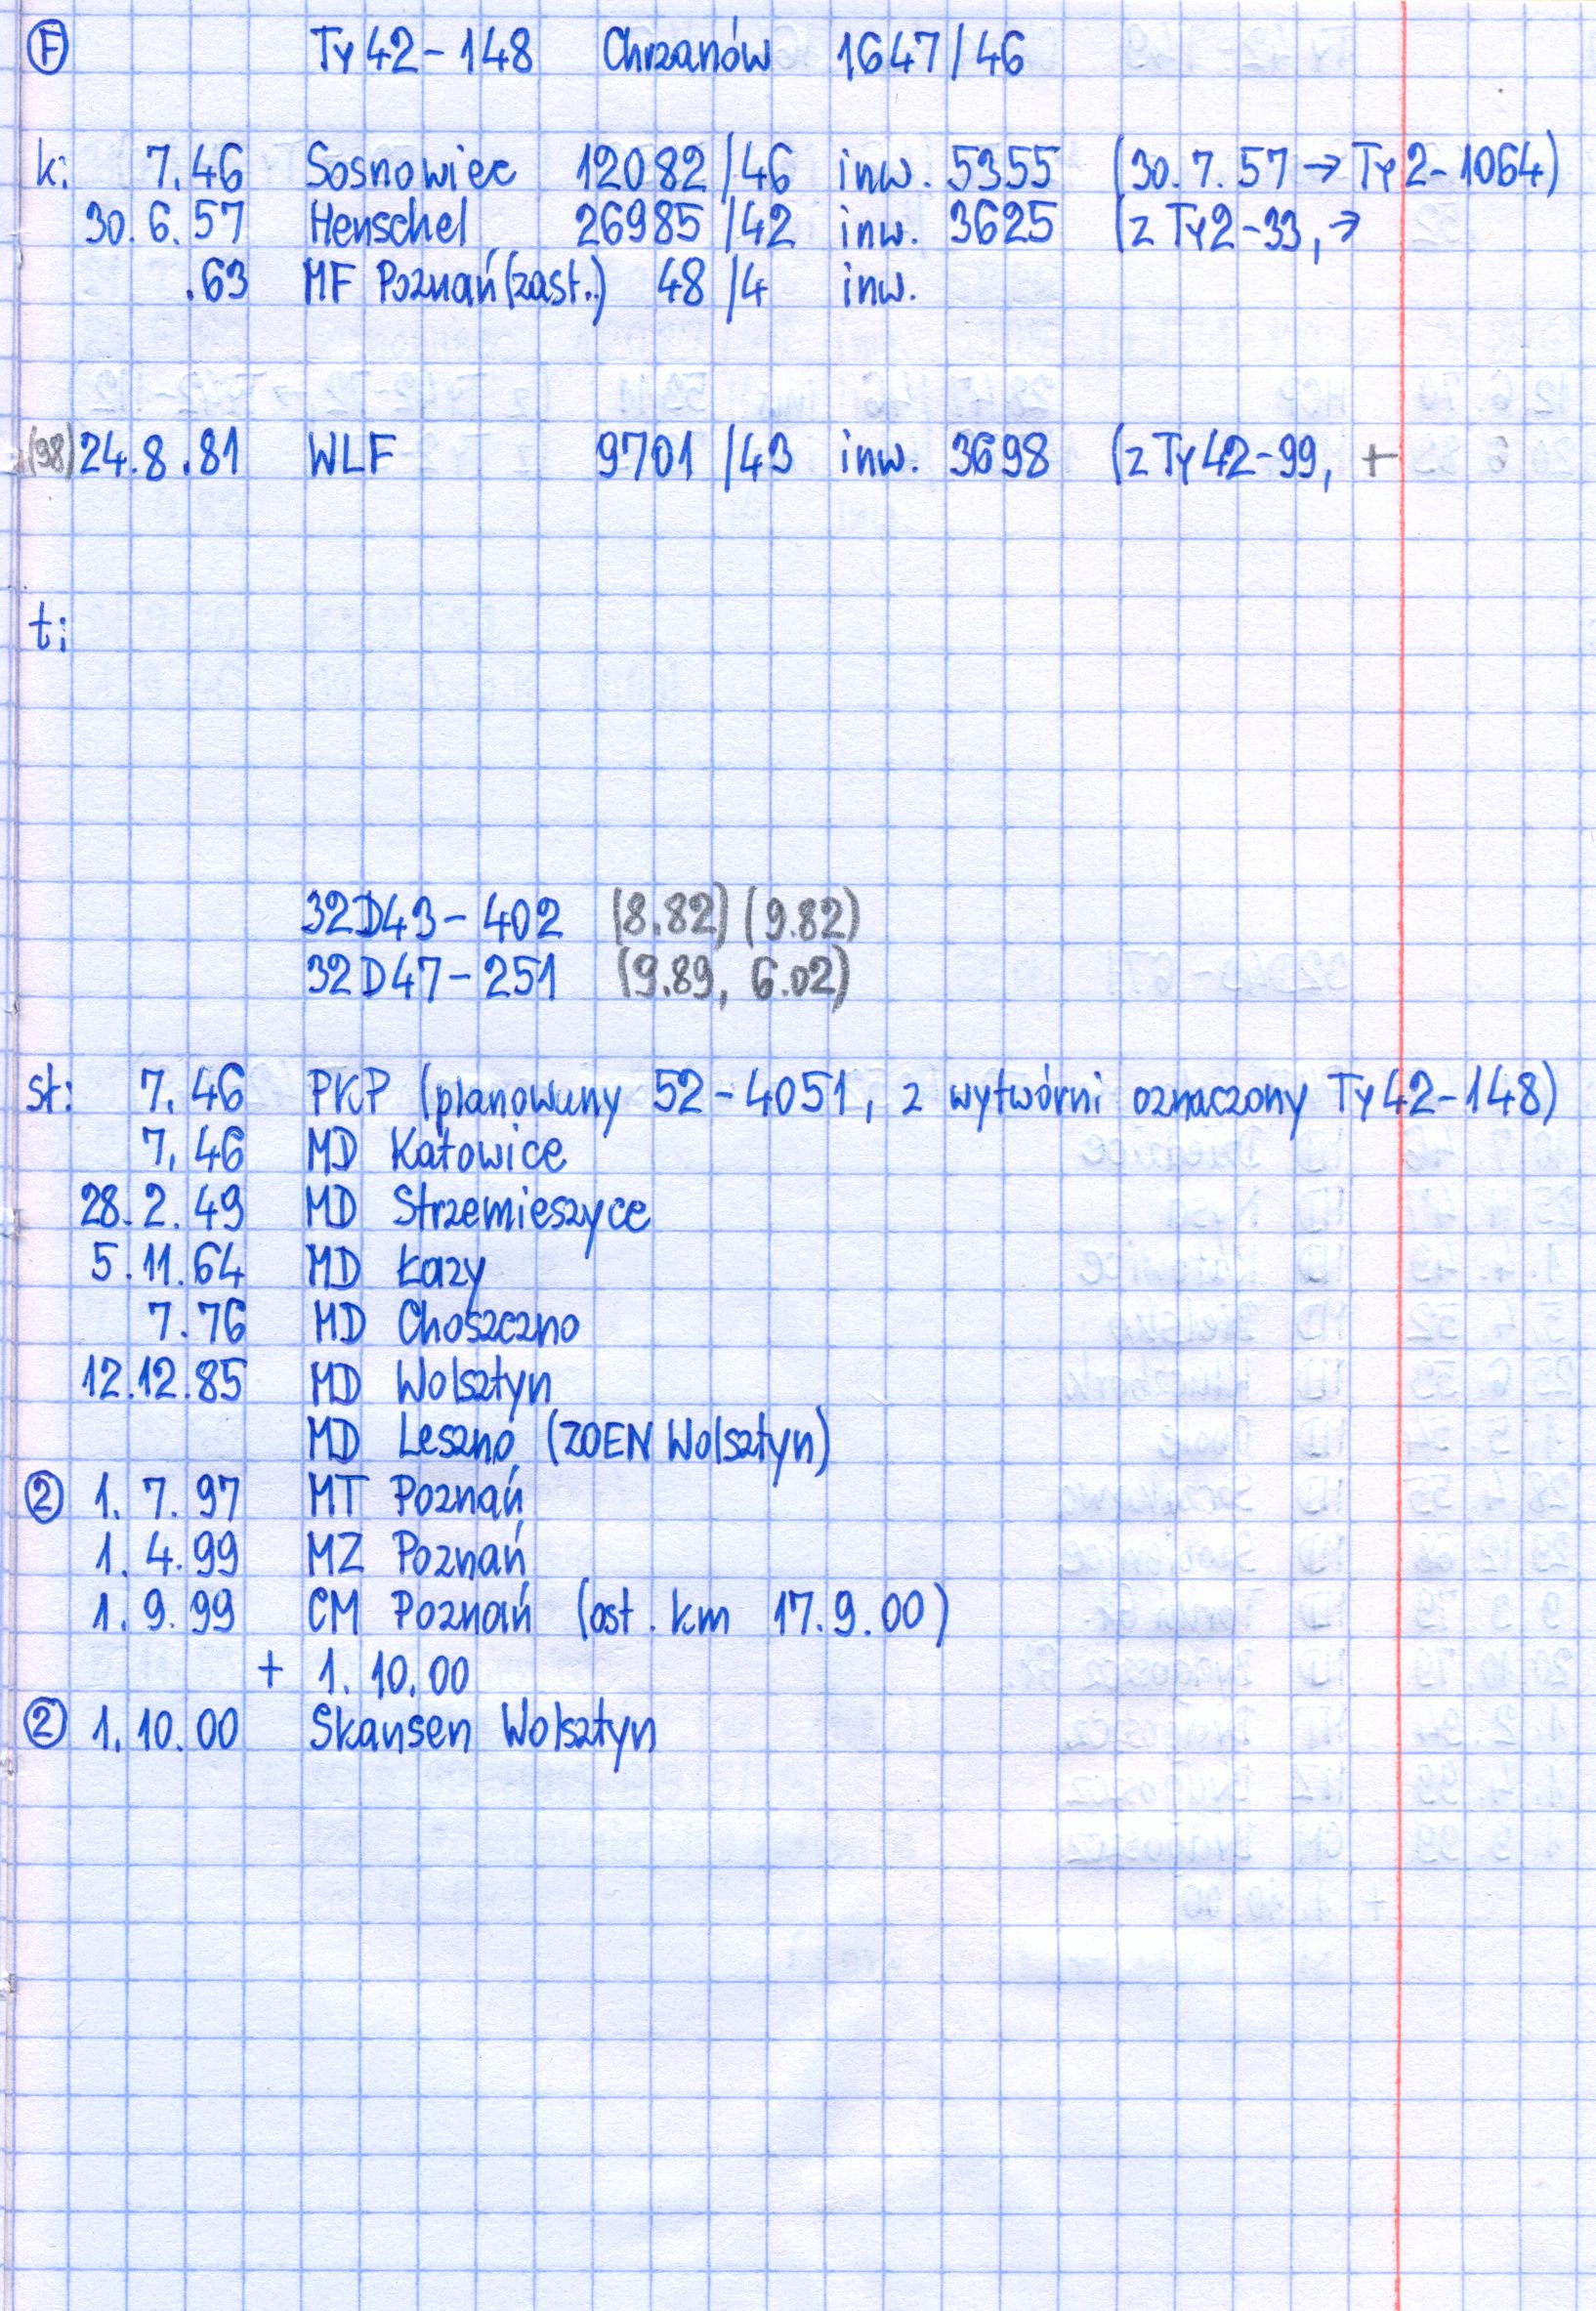 F Ty42-148 Chrzanów 1647/46
k: 7.46 Sosnowiec 12082/46 inw. 5355 (30.7.57 → Ty2-1064)
30.6.57 Henschel 26985/42 inw. 3625 (z Ty2-33, →
.63 MF Poznań (zast.) 48/4 inw.
(98) 24.8.81 WLF 9701/43 inw. 3698 (z Ty42-99, +
t:
32D43-402 (8.82) (9.82)
32D47-251 (9.89, 6.02)
st: 7.46 PKP (planowany 52-4051, z wytwórni oznaczony Ty42-148)
7.46 MD Katowice
28.2.49 MD Strzemieszyce
5.11.64 MD Łazy
7.76 MD Choszczno
12.12.85 MD Wolsztyn
MD Leszno (ZOEN Wolsztyn)
② 1.7.97 MT Poznań
1.4.99 MZ Poznań
1.9.99 CM Poznań (ost. km 17.9.00)
+ 1.10.00
② 1.10.00 Skansen Wolsztyn